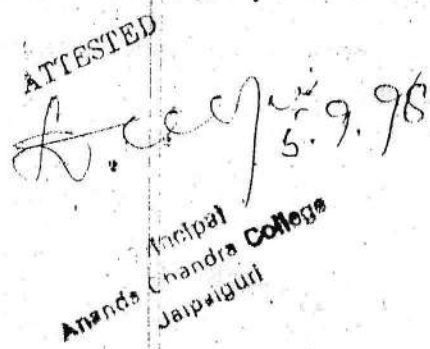 ATTESTED
5.9.96
Principal
Ananda Chandra College
Jalpaiguri